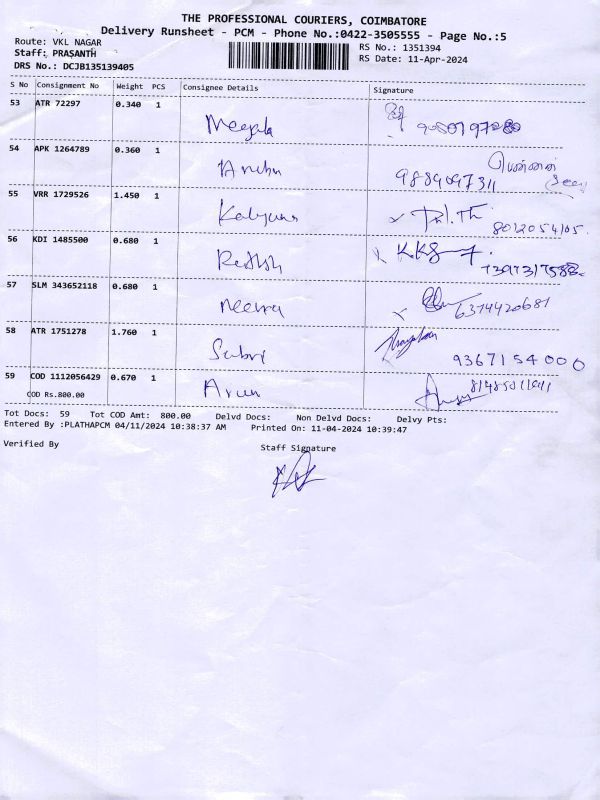 THE PROFESSIONAL COURIERS, COIMBATORE
Delivery Runsheet - PCM - Phone No.:0422-3505555 - Page No.:5
Route: VKL NAGAR
RS No.: 1351394
Staff: PRASANTH
RS Date: 11-Apr-2024
DRS No.: DCJB135139405
S No Consignment No Weight PCS Consignee Details Signature
53 ATR 72297 0.340 1
54 APK 1264789 0.360 1
9889097311
55 VRR 1729526 1.450 1 Kalyani
8012054105.
56 KDI 1485500 0.680 1
57 SLM 343652118 0.680 1 Meera
6374420681
58 ATR 1751278 1.760 1
Subri
9367154000
59 COD 1112056429 0.670 1 Arun
COD Rs.800.00
Tot Docs: 59 Tot COD Amt: 800.00 Delvd Docs: Non Delvd Docs: Delvy Pts:
Entered By :PLATHAPCM 04/11/2024 10:38:37 AM Printed On: 11-04-2024 10:39:47
Verified By
Staff Signature